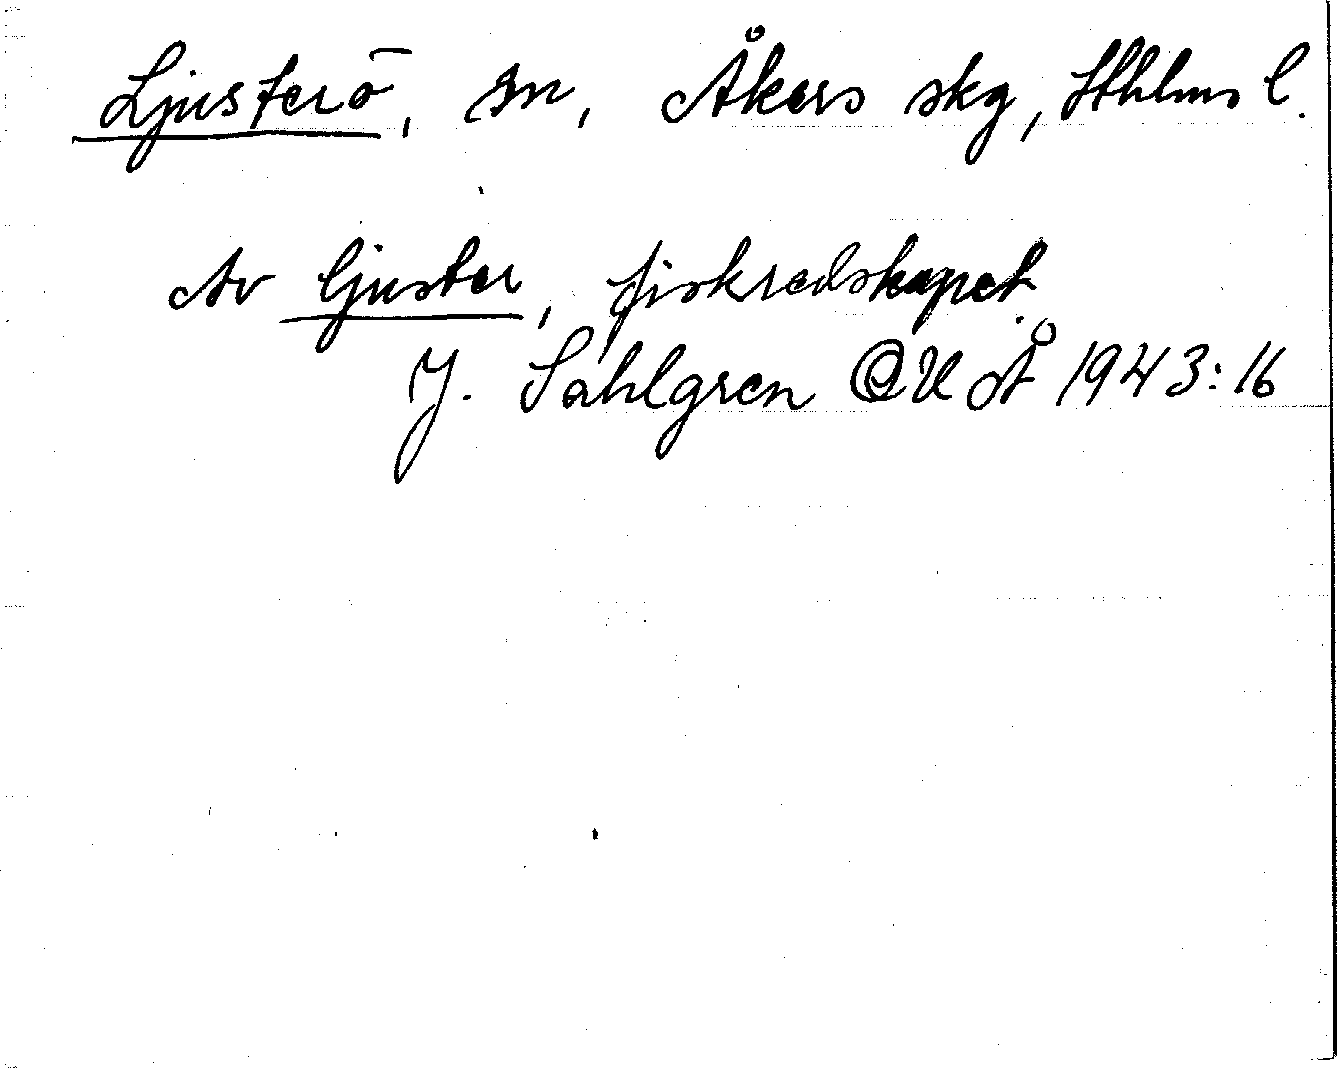 Ljusterö, sn, Åkers skg, Sthlms l.
Av ljuster, fiskredskapet.
J. Sahlgren OUÅ 1943:16